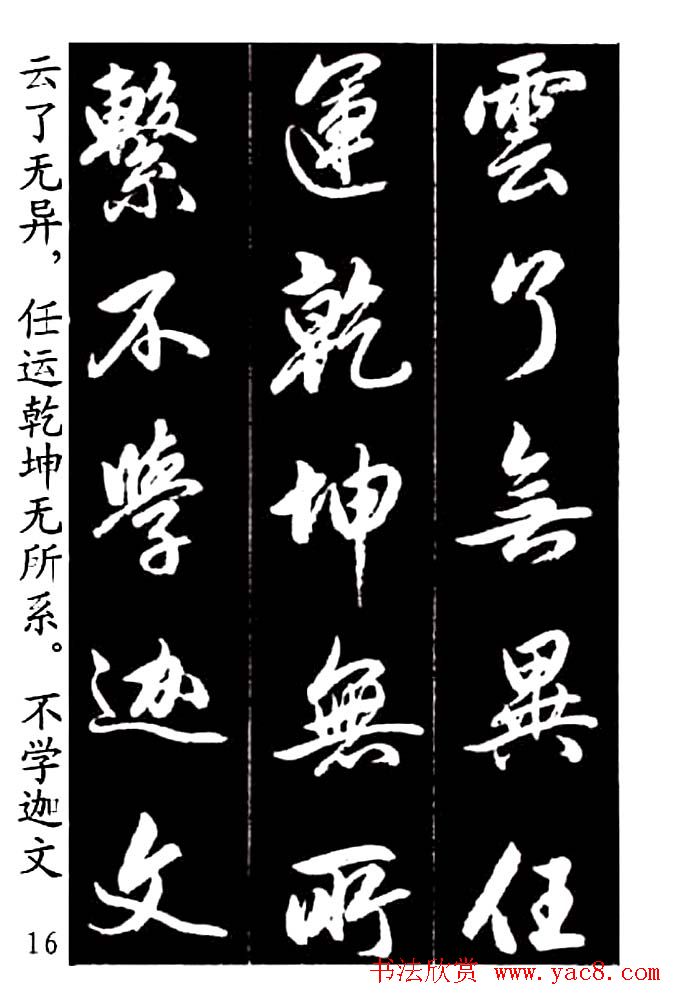 雲了無異任
運乾坤無所
繫不學迦文
云了无异，任运乾坤无所系。不学迦文
16
书法欣赏 www.yac8.com